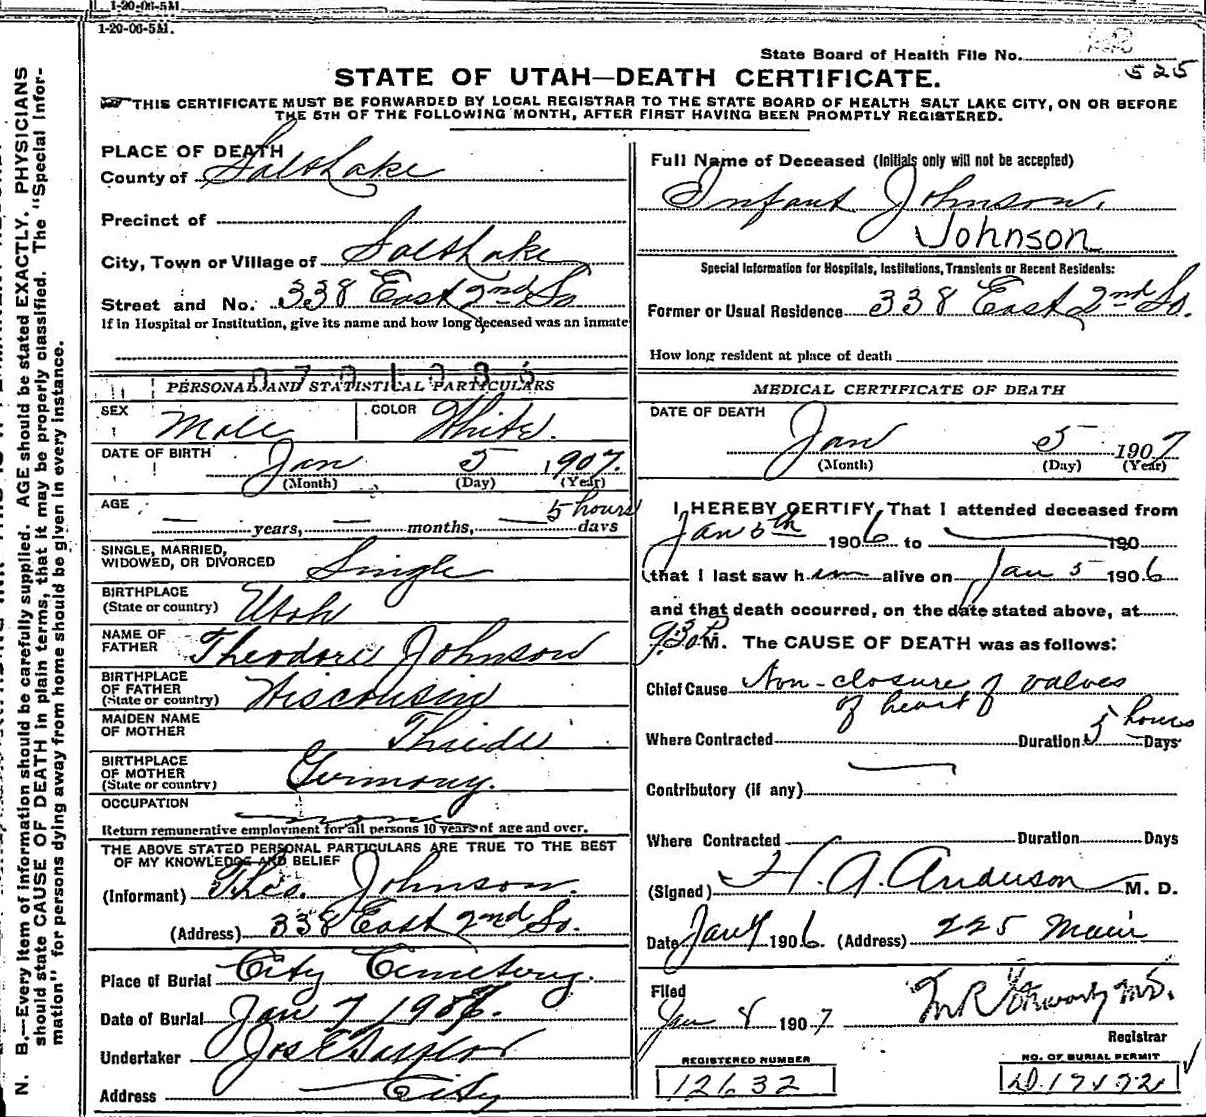 1-20-06-5M.
1-20-06-5M.
State Board of Health File No.
525
STATE OF UTAH—DEATH CERTIFICATE.
THIS CERTIFICATE MUST BE FORWARDED BY LOCAL REGISTRAR TO THE STATE BOARD OF HEALTH SALT LAKE CITY, ON OR BEFORE
THE 5TH OF THE FOLLOWING MONTH, AFTER FIRST HAVING BEEN PROMPTLY REGISTERED.
N. B.—Every item of information should be carefully supplied. AGE should be stated EXACTLY. PHYSICIANS
should state CAUSE OF DEATH in plain terms, that it may be properly classified. The "Special Infor-
mation" for persons dying away from home should be given in every instance.
PLACE OF DEATH
County of Salt Lake
Precinct of
City, Town or Village of Salt Lake
Street and No. 338 East 2nd So
If in Hospital or Institution, give its name and how long deceased was an inmate
PERSONAL AND STATISTICAL PARTICULARS
SEX Male COLOR White.
DATE OF BIRTH Jan 5 1907.
(Month) (Day) (Year)
AGE — years, — months, — 5 hours days
SINGLE, MARRIED,
WIDOWED, OR DIVORCED Single
BIRTHPLACE
(State or country) Utah
NAME OF
FATHER Theodore Johnson
BIRTHPLACE
OF FATHER
(State or country) Wisconsin
MAIDEN NAME
OF MOTHER
BIRTHPLACE
OF MOTHER
(State or country) Germany.
OCCUPATION none
Return remunerative employment for all persons 10 years of age and over.
THE ABOVE STATED PERSONAL PARTICULARS ARE TRUE TO THE BEST
OF MY KNOWLEDGE AND BELIEF
(Informant) Theo. Johnson.
(Address) 338 East 2nd So.
Place of Burial City Cemetery.
Date of Burial Jan 7 1907.
Undertaker Jos E Taylor
Address City
Full Name of Deceased (Initials only will not be accepted)
Infant Johnson.
Johnson
Special Information for Hospitals, Institutions, Transients or Recent Residents:
Former or Usual Residence 338 East 2nd So.
How long resident at place of death
MEDICAL CERTIFICATE OF DEATH
DATE OF DEATH
Jan 5 1907
(Month) (Day) (Year)
I HEREBY CERTIFY, That I attended deceased from
Jan 5th 1906 to — 190
that I last saw him alive on Jan 5 1906
and that death occurred, on the date stated above, at
9:30 P M. The CAUSE OF DEATH was as follows:
Chief Cause Non-closure of valves
of heart
Where Contracted Duration 5 hours Days
Contributory (if any) —
Where Contracted Duration Days
(Signed) H. A. Anderson M. D.
Date Jan 7 1906. (Address) 225 Main
Filed
Jan 8 1907
Registrar
REGISTERED NUMBER
12632
NO. OF BURIAL PERMIT